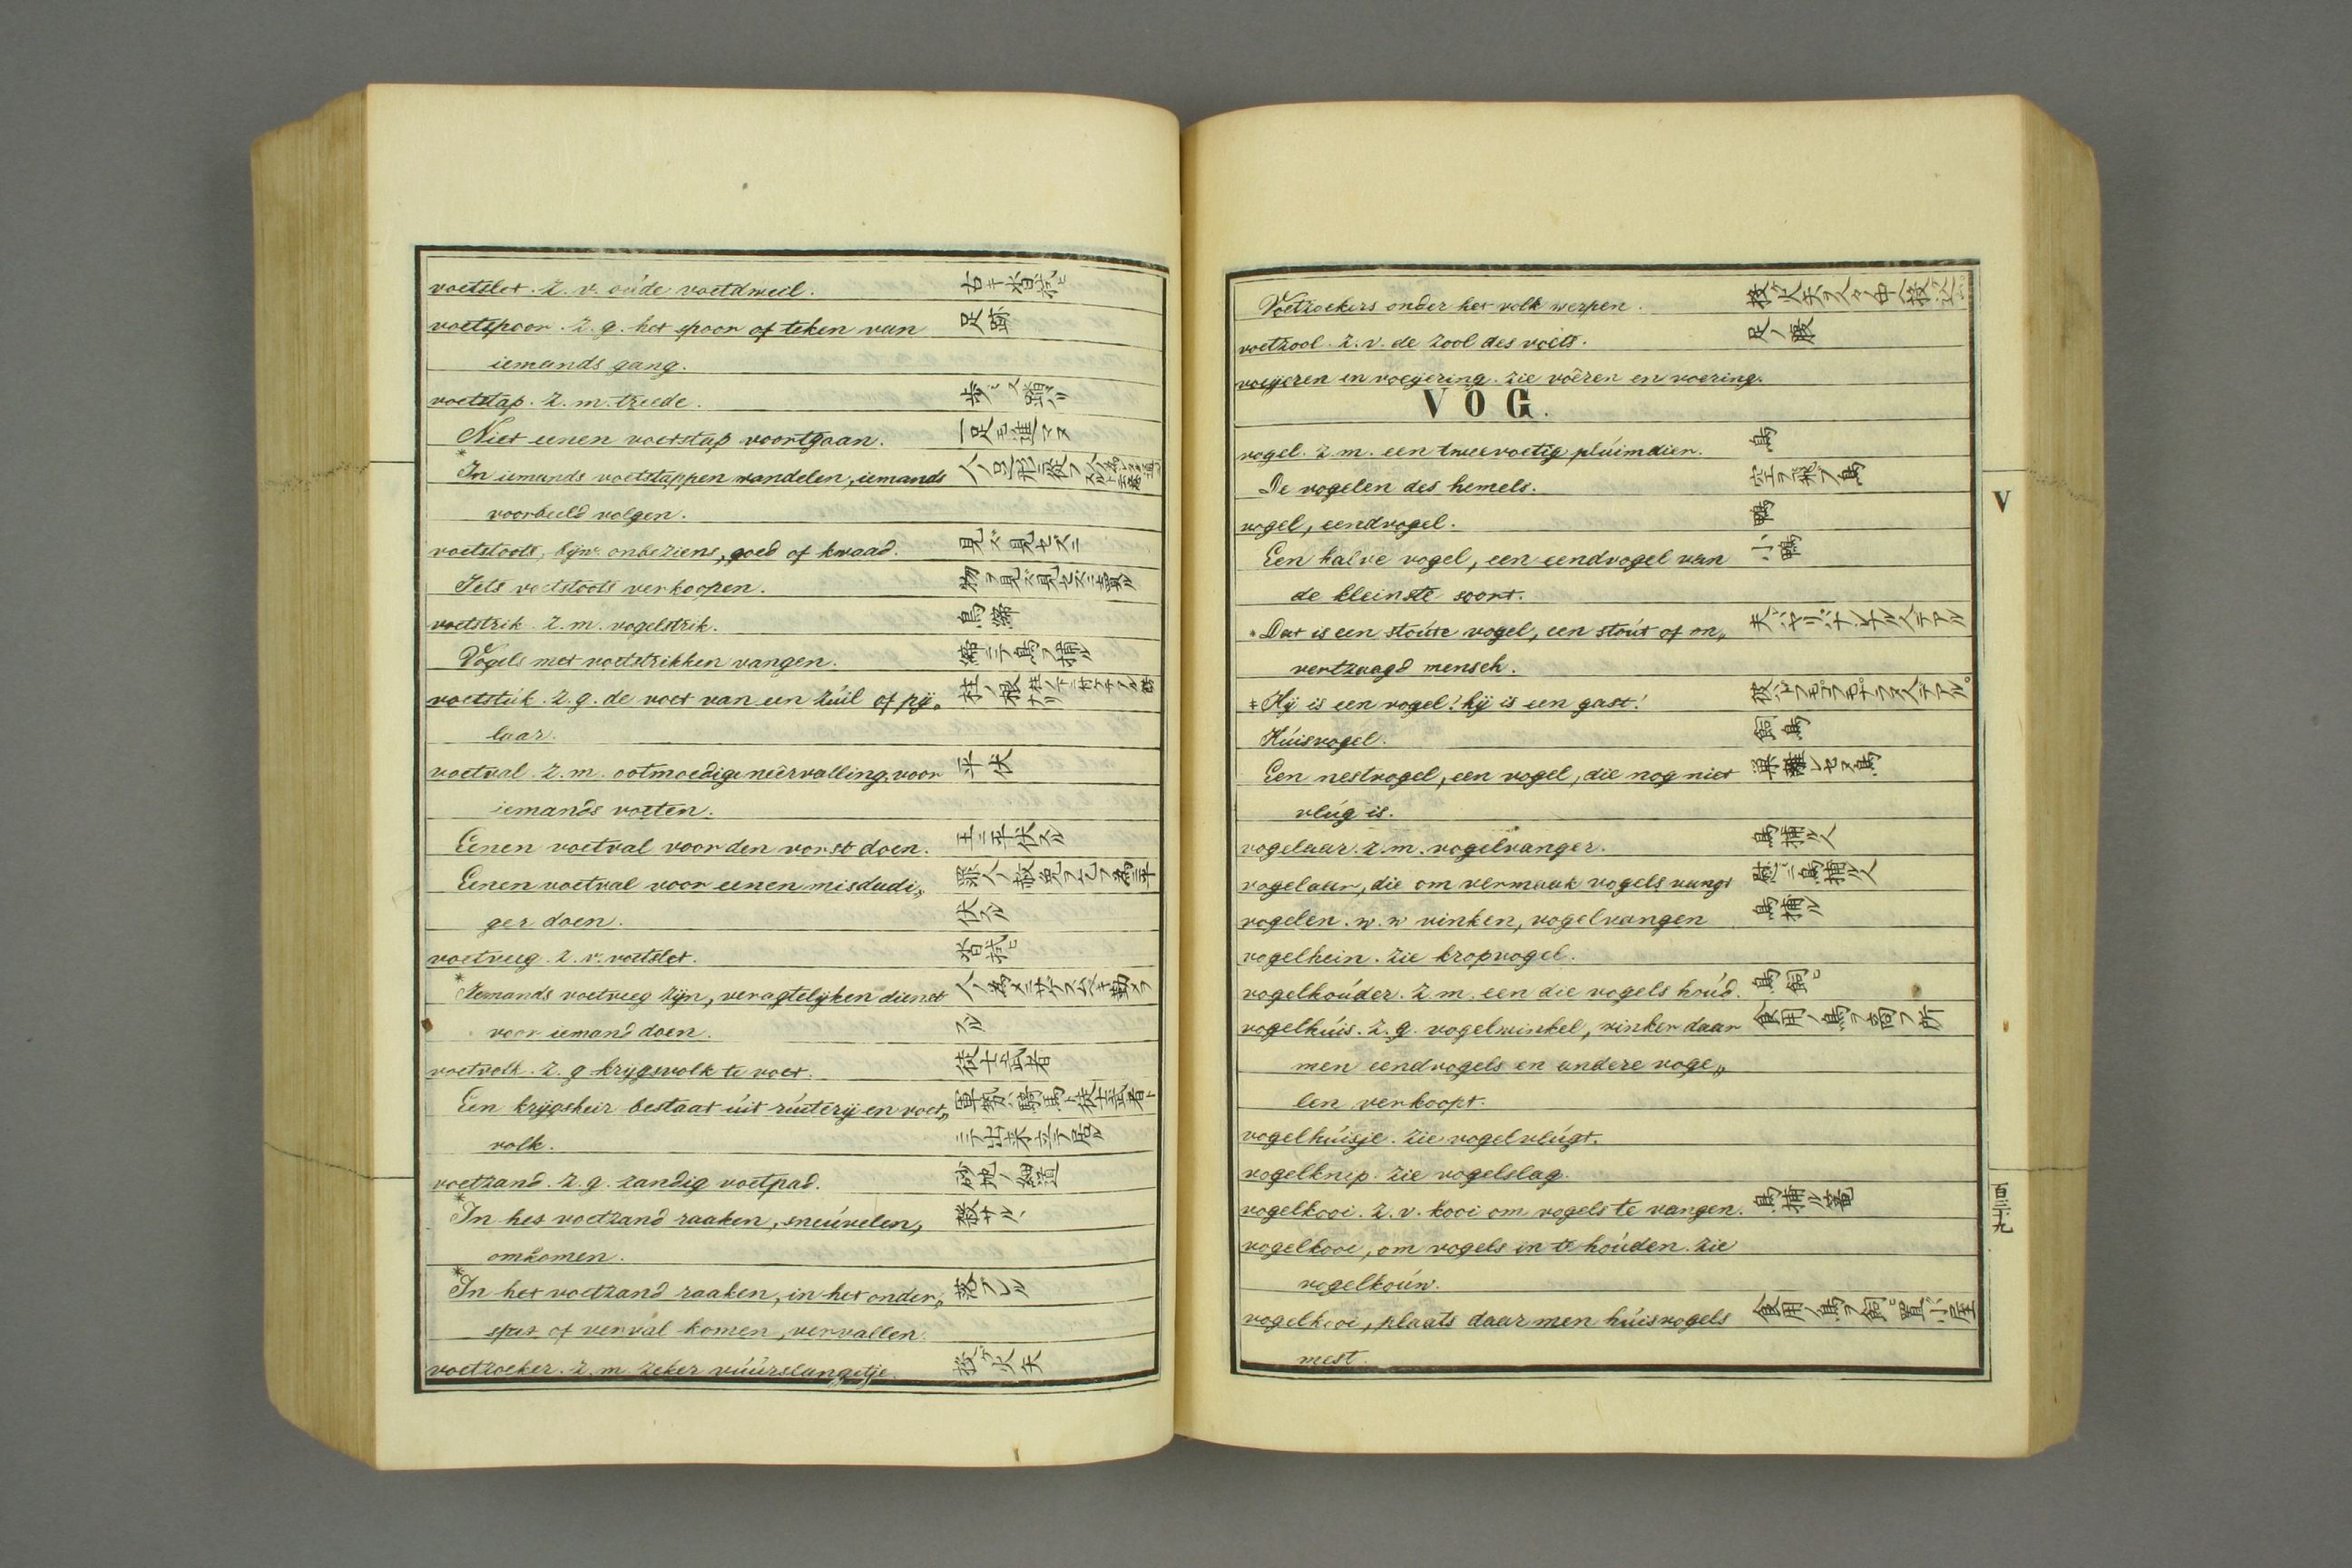 voetslet. z. v. oúde voetdweil. 古キ沓拭ヒ
voetspoor. z. g. het spoor of teken van 足跡
iemands gang.
voetstap. z. m. treede.
Niet eenen voetstap voortgaan. 一足モ進マヌ
*In iemands voetstappen wandelen, iemands
voorbeeld volgen.
voetstoots, bijw. onbeziens, goed of kwaad. 見ズ見セズニ
Iets voetstoots verkoopen. 物ヲ見ズ見セズニ賣ル
voetstrik. z. m. vogelstrik. 鳥
Vogels met voetstrikken vangen. ニテ鳥ヲ捕ル
voetstúk. z. g. de voet van een zúil of pij„ 柱ノ根
laar.
voetval. z. m. ootmoedige neêrvalling, voor 平伏
iemands voeten.
Eenen voetval voor den vorst doen. 王ニ平伏スル
Eenen voetval voor eenen misdadi„ 罪人ノ赦免ヲ乞フ為ニ平
ger doen. 伏スル
voetveeg. z. v. voetslet. 沓拭ヒ
*Iemands voetveeg zijn, veragtelijken dienst
voor iemand doen. スル
voetvolk. z. g. krijgsvolk te voet. 徒士武者
Een krijgsheir bestaat úit rúiterij en voet„ 軍勢ハ騎馬ト徒士武者ト
volk. ニテ出来立テ居ル
voetzand. z. g. zandig voetpad. 砂地ノ細道
*In het voetzand raaken, sneúvelen, 殺サル丶
omkomen.
*In het voetzand raaken, in het onder„ 落フレル
spit of verval komen, vervallen.
voetzoeker. z. m. zeker vúúrslangetje. 投ゲ火矢
Voetzoekers onder het volk werpen.
voetzool. z. v. de zool des voets. 足ノ
voeijeren en voeijering. zie voêren en voering.
VOG.
vogel. z. m. een tweevoetig plúimdier. 鳥
De vogelen des hemels. 空ヲ飛フ鳥
vogel, eendvogel. 鴨
Een halve vogel, een eendvogel van 小鴨
de kleinste soort.
*Dat is een stoúte vogel, een stoút of on„
vertzaagd mensch.
‡Hij is een vogel! hij is een gast!
Húisvogel. 飼鳥
Een nestvogel, een vogel, die nog niet 巣離レセヌ鳥
vlúg is.
vogelaar. z. m. vogelvanger. 鳥捕ル人
vogelaar, die om vermaak vogels vangt 慰ミニ鳥捕ル人
vogelen. w. w. vinken, vogelvangen 鳥捕ル
vogelhein. zie kropvogel.
vogelhoúder. z. m. een die vogels hoúd. 鳥飼ヒ
vogelhúis. z. g. vogelwinkel, winkel daar 食用ノ鳥ヲ商フ所
men eendvogels en andere voge„
len verkoopt.
vogelhúisje. zie vogelvlúgt.
vogelknip. zie vogelslag.
vogelkooi. z. v. kooi om vogels te vangen. 鳥捕ル篭
vogelkooi, om vogels in te hoúden. zie
vogelkoúw.
vogelkooi, plaats daar men húisvogels 食用ノ鳥ヲ飼ヒ置ク小屋
mest.
V
百三十九